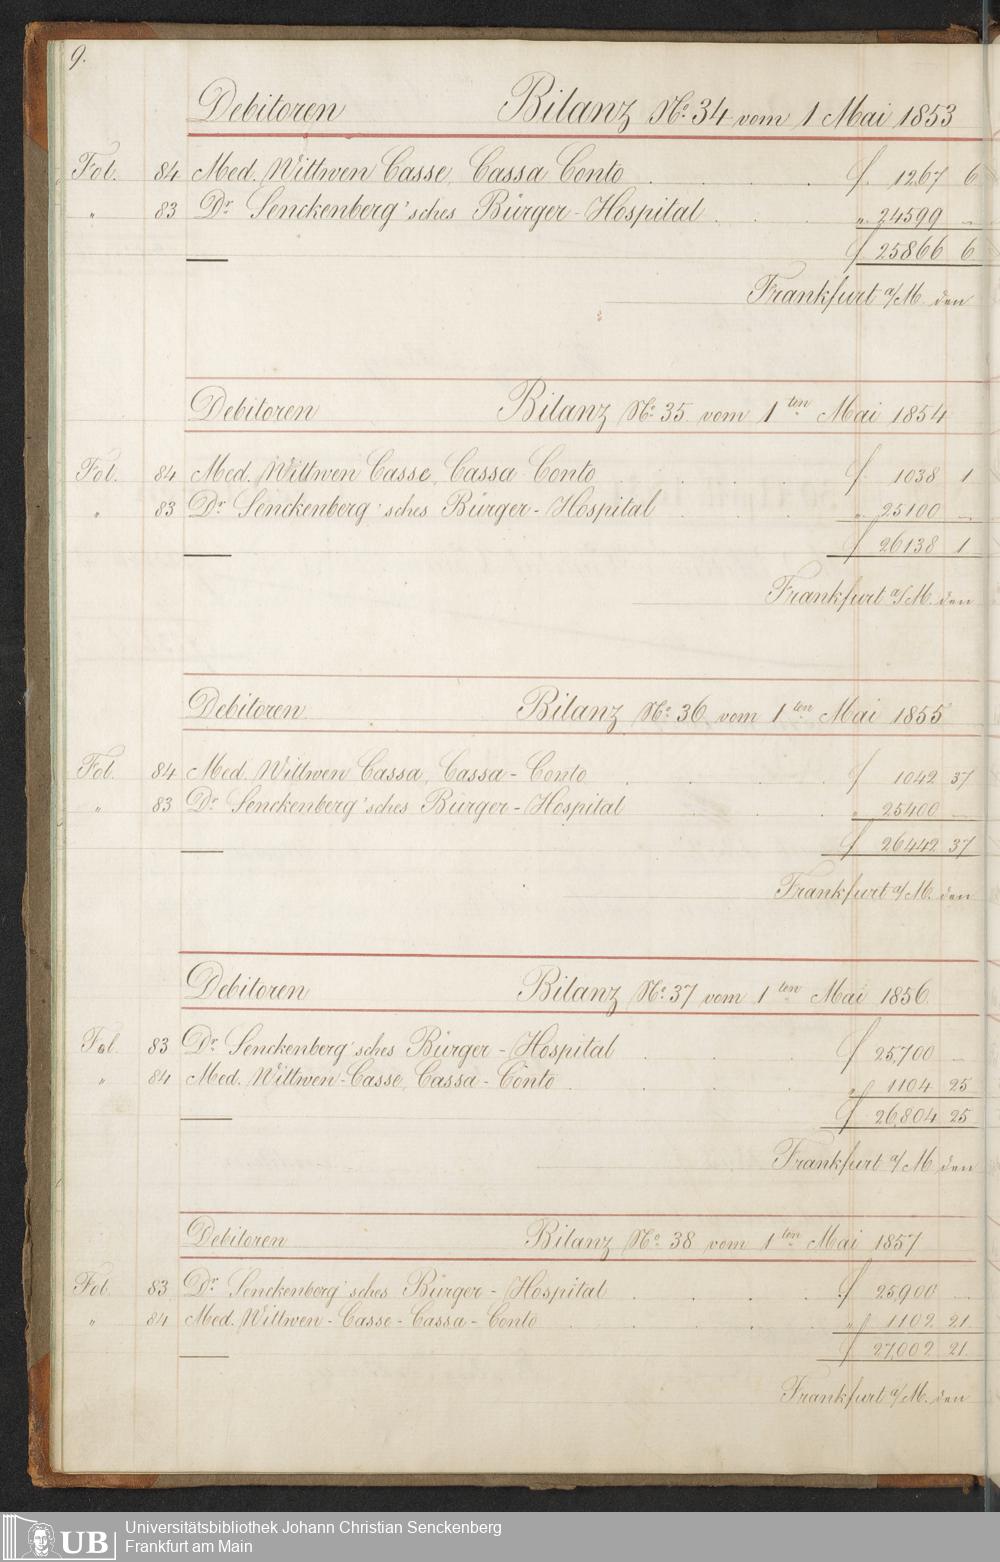 9.
Debitoren Bilanz No. 34 vom 1 Mai 1853
Fol. 84 Med. Wittwen Casse, Cassa Conto . . . . f. 1267 6
" 83 Dr. Senckenberg'sches Bürger-Hospital . . . " 24599 —
f 25866 6
Frankfurt a/M. den
Debitoren Bilanz No. 35. vom 1ten Mai 1854
Fol. 84 Med. Wittwen Casse, Cassa Conto . . . . f. 1038 1
" 83 Dr. Senckenberg'sches Bürger-Hospital . . . " 25100 —
f 26138 1
Frankfurt a/M. den
Debitoren Bilanz No. 36 vom 1ten Mai 1855
Fol. 84 Med. Wittwen Cassa, Cassa-Conto . . . . f 1042 37
" 83 Dr. Senckenberg'sches Bürger-Hospital . . . " 25400 —
f 26442 37
Frankfurt a/M. den
Debitoren Bilanz No. 37 vom 1ten Mai 1856.
Fol. 83 Dr. Senckenberg'sches Bürger-Hospital . . . f 25,700 —
" 84 Med. Wittwen-Casse, Cassa-Conto . . . . " 1104 25
f 26,804 25
Frankfurt a/M den
Debitoren Bilanz No. 38 vom 1ten Mai 1857
Fol. 83. Dr. Senckenberg'sches Bürger-Hospital . . . f 25900 —
" 84 Med. Wittwen-Casse-Cassa-Conto . . . . " 1102 21.
f 27,002 21.
Frankfurt a/M. den
UB
Universitätsbibliothek Johann Christian Senckenberg
Frankfurt am Main